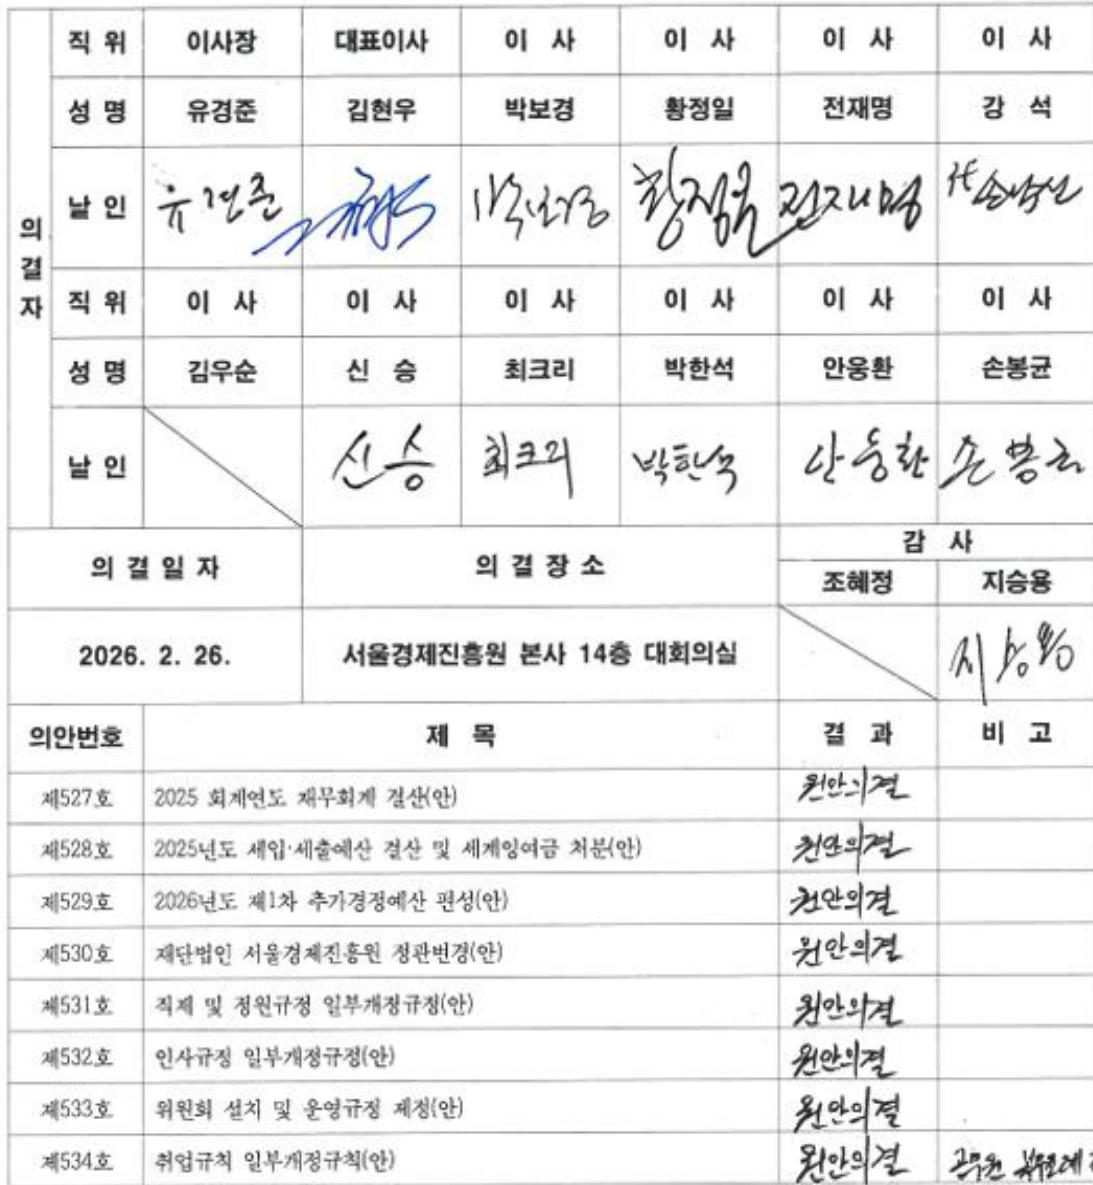 직 위 이사장 대표이사 이 사 이 사 이 사 이 사
성 명 유경준 김현우 박보경 황정일 전재명 강 석
의결자
날 인 유경준 황정일 전재명 代
직 위 이 사 이 사 이 사 이 사 이 사 이 사
성 명 김우순 신 승 최크리 박한석 안웅환 손봉균
날 인 신승 최크리 박한석 안웅환 손봉균
의 결 일 자 의 결 장 소 감 사
조혜정 지승용
2026. 2. 26. 서울경제진흥원 본사 14층 대회의실 지승용
의안번호 제 목 결 과 비 고
제527호 2025 회계연도 재무회계 결산(안) 원안의결
제528호 2025년도 세입·세출예산 결산 및 세계잉여금 처분(안) 원안의결
제529호 2026년도 제1차 추가경정예산 편성(안) 원안의결
제530호 재단법인 서울경제진흥원 정관변경(안) 원안의결
제531호 직제 및 정원규정 일부개정규정(안) 원안의결
제532호 인사규정 일부개정규정(안) 원안의결
제533호 위원회 설치 및 운영규정 제정(안) 원안의결
제534호 취업규칙 일부개정규칙(안) 원안의결 공무원